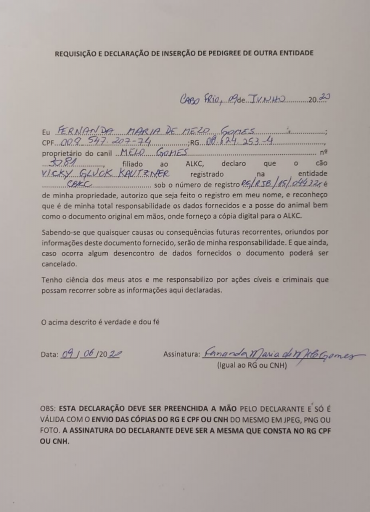 REQUISIÇÃO E DECLARAÇÃO DE INSERÇÃO DE PEDIGREE DE OUTRA ENTIDADE
CABO FRIO, 09 de JUNHO 20 20
Eu FERNANDA MARIA DE MELO GOMES ;
CPF 009.547.207-74 ;RG
proprietário do canil MELO GOMES nº
5081, filiado ao ALKC, declaro que o cão
VICKY GLÜCK KAUTZNER registrado na entidade
CBKC sob o número de registro é
de minha propriedade, autorizo que seja feito o registro em meu nome, e reconheço
que é de minha total responsabilidade os dados fornecidos e a posse do animal bem
como o documento original em mãos, onde forneço a cópia digital para o ALKC.
Sabendo-se que quaisquer causas ou consequências futuras recorrentes, oriundos por
informações deste documento fornecido, serão de minha responsabilidade. E que ainda,
caso ocorra algum desencontro de dados fornecidos o documento poderá ser
cancelado.
Tenho ciência dos meus atos e me responsabilizo por ações cíveis e criminais que
possam recorrer sobre as informações aqui declaradas.
O acima descrito é verdade e dou fé
Data: 09/06/2020 Assinatura: Fernanda Maria de Melo Gomes
(Igual ao RG ou CNH)
OBS: ESTA DECLARAÇÃO DEVE SER PREENCHIDA A MÃO PELO DECLARANTE E SÓ É
VÁLIDA COM O ENVIO DAS CÓPIAS DO RG E CPF OU CNH DO MESMO EM JPEG, PNG OU
FOTO. A ASSINATURA DO DECLARANTE DEVE SER A MESMA QUE CONSTA NO RG CPF
OU CNH.